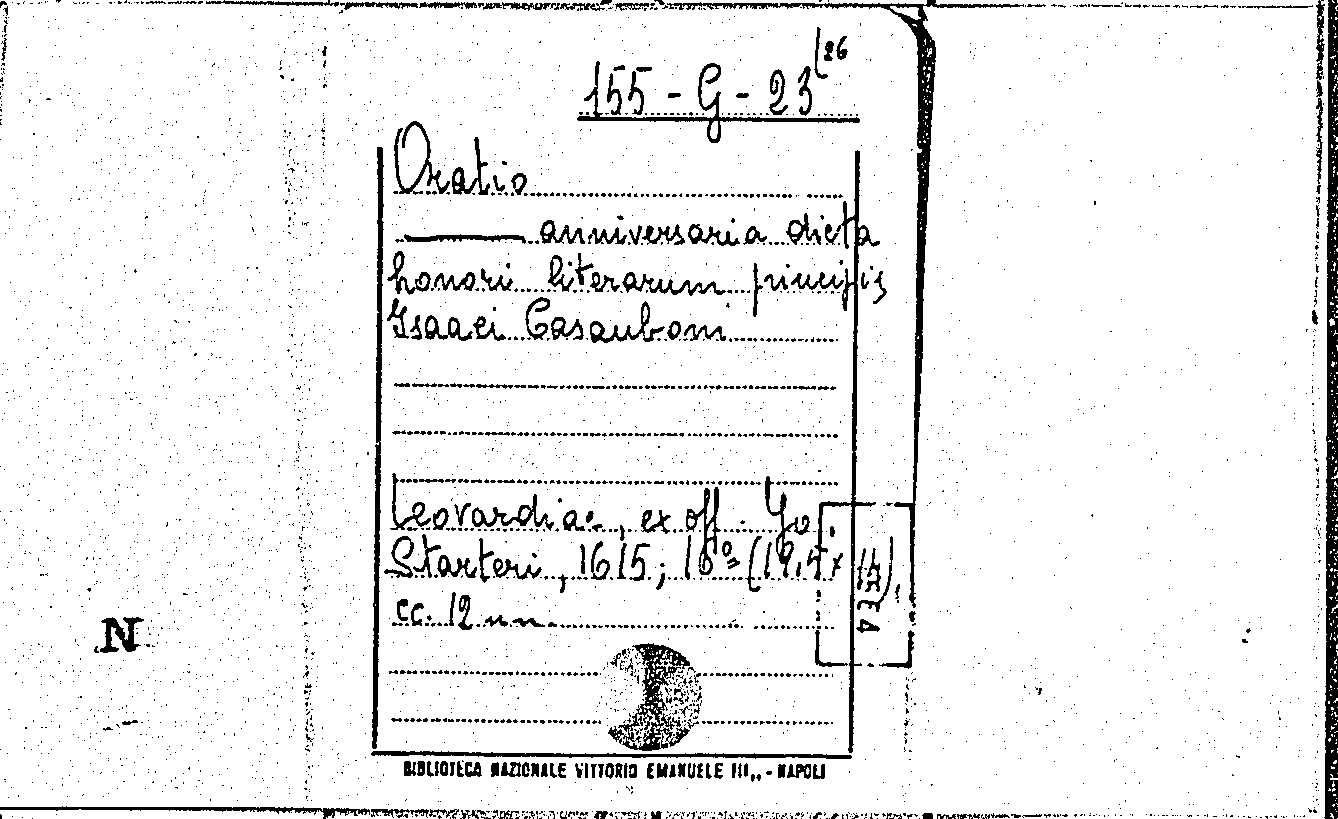 155 - G - 23 (26
Oratio
——— anniversaria dicta
honori literarum principis
Isaaci Casauboni
Leovardiae, ex off. Jo.
Starteri, 1615; 16º (19,5 x
cc. 12 nn.
N
BIBLIOTECA NAZIONALE VITTORIO EMANUELE III,, - NAPOLI